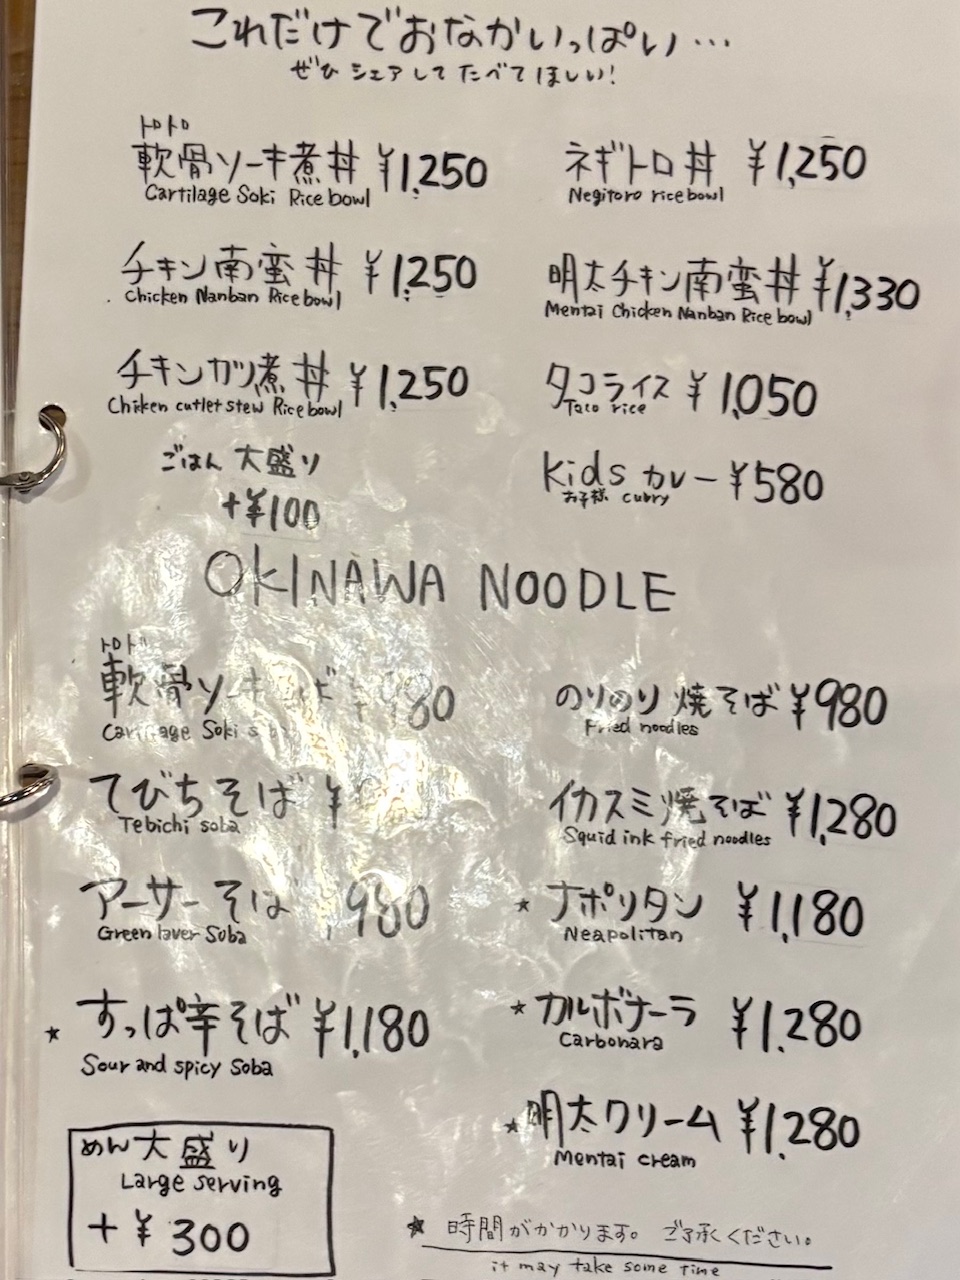 これだけでおなかいっぱい…
ぜひ シェアして たべて ほしい!
トロトロ
軟骨ソーキ煮丼 ¥1,250
Cartilage Soki Rice bowl
ネギトロ丼 ¥1,250
Negitoro rice bowl
チキン南蛮丼 ¥1,250
Chicken Nanban Rice bowl
明太チキン南蛮丼 ¥1,330
Mentai Chicken Nanban Rice bowl
チキンカツ煮丼 ¥1,250
Chicken cutlet stew Rice bowl
タコライス ¥1,050
Taco rice
ごはん 大盛り
+¥100
Kids カレー ¥580
お子様 curry
OKINAWA NOODLE
トロトロ
軟骨ソーキそば ¥980
Cartilage Soki
のりのり焼そば ¥980
Fried noodles
てびちそば ¥
Tebichi soba
イカスミ焼そば ¥1,280
Squid ink fried noodles
アーサーそば 980
Green laver Soba
★ ナポリタン ¥1,180
Neapolitan
★ すっぱ辛そば ¥1,180
Sour and spicy Soba
★ カルボナーラ ¥1,280
Carbonara
★ 明太クリーム ¥1,280
Mentai cream
めん大盛り
Large serving
+ ¥300
★ 時間がかかります。ご了承ください。
it may take some time